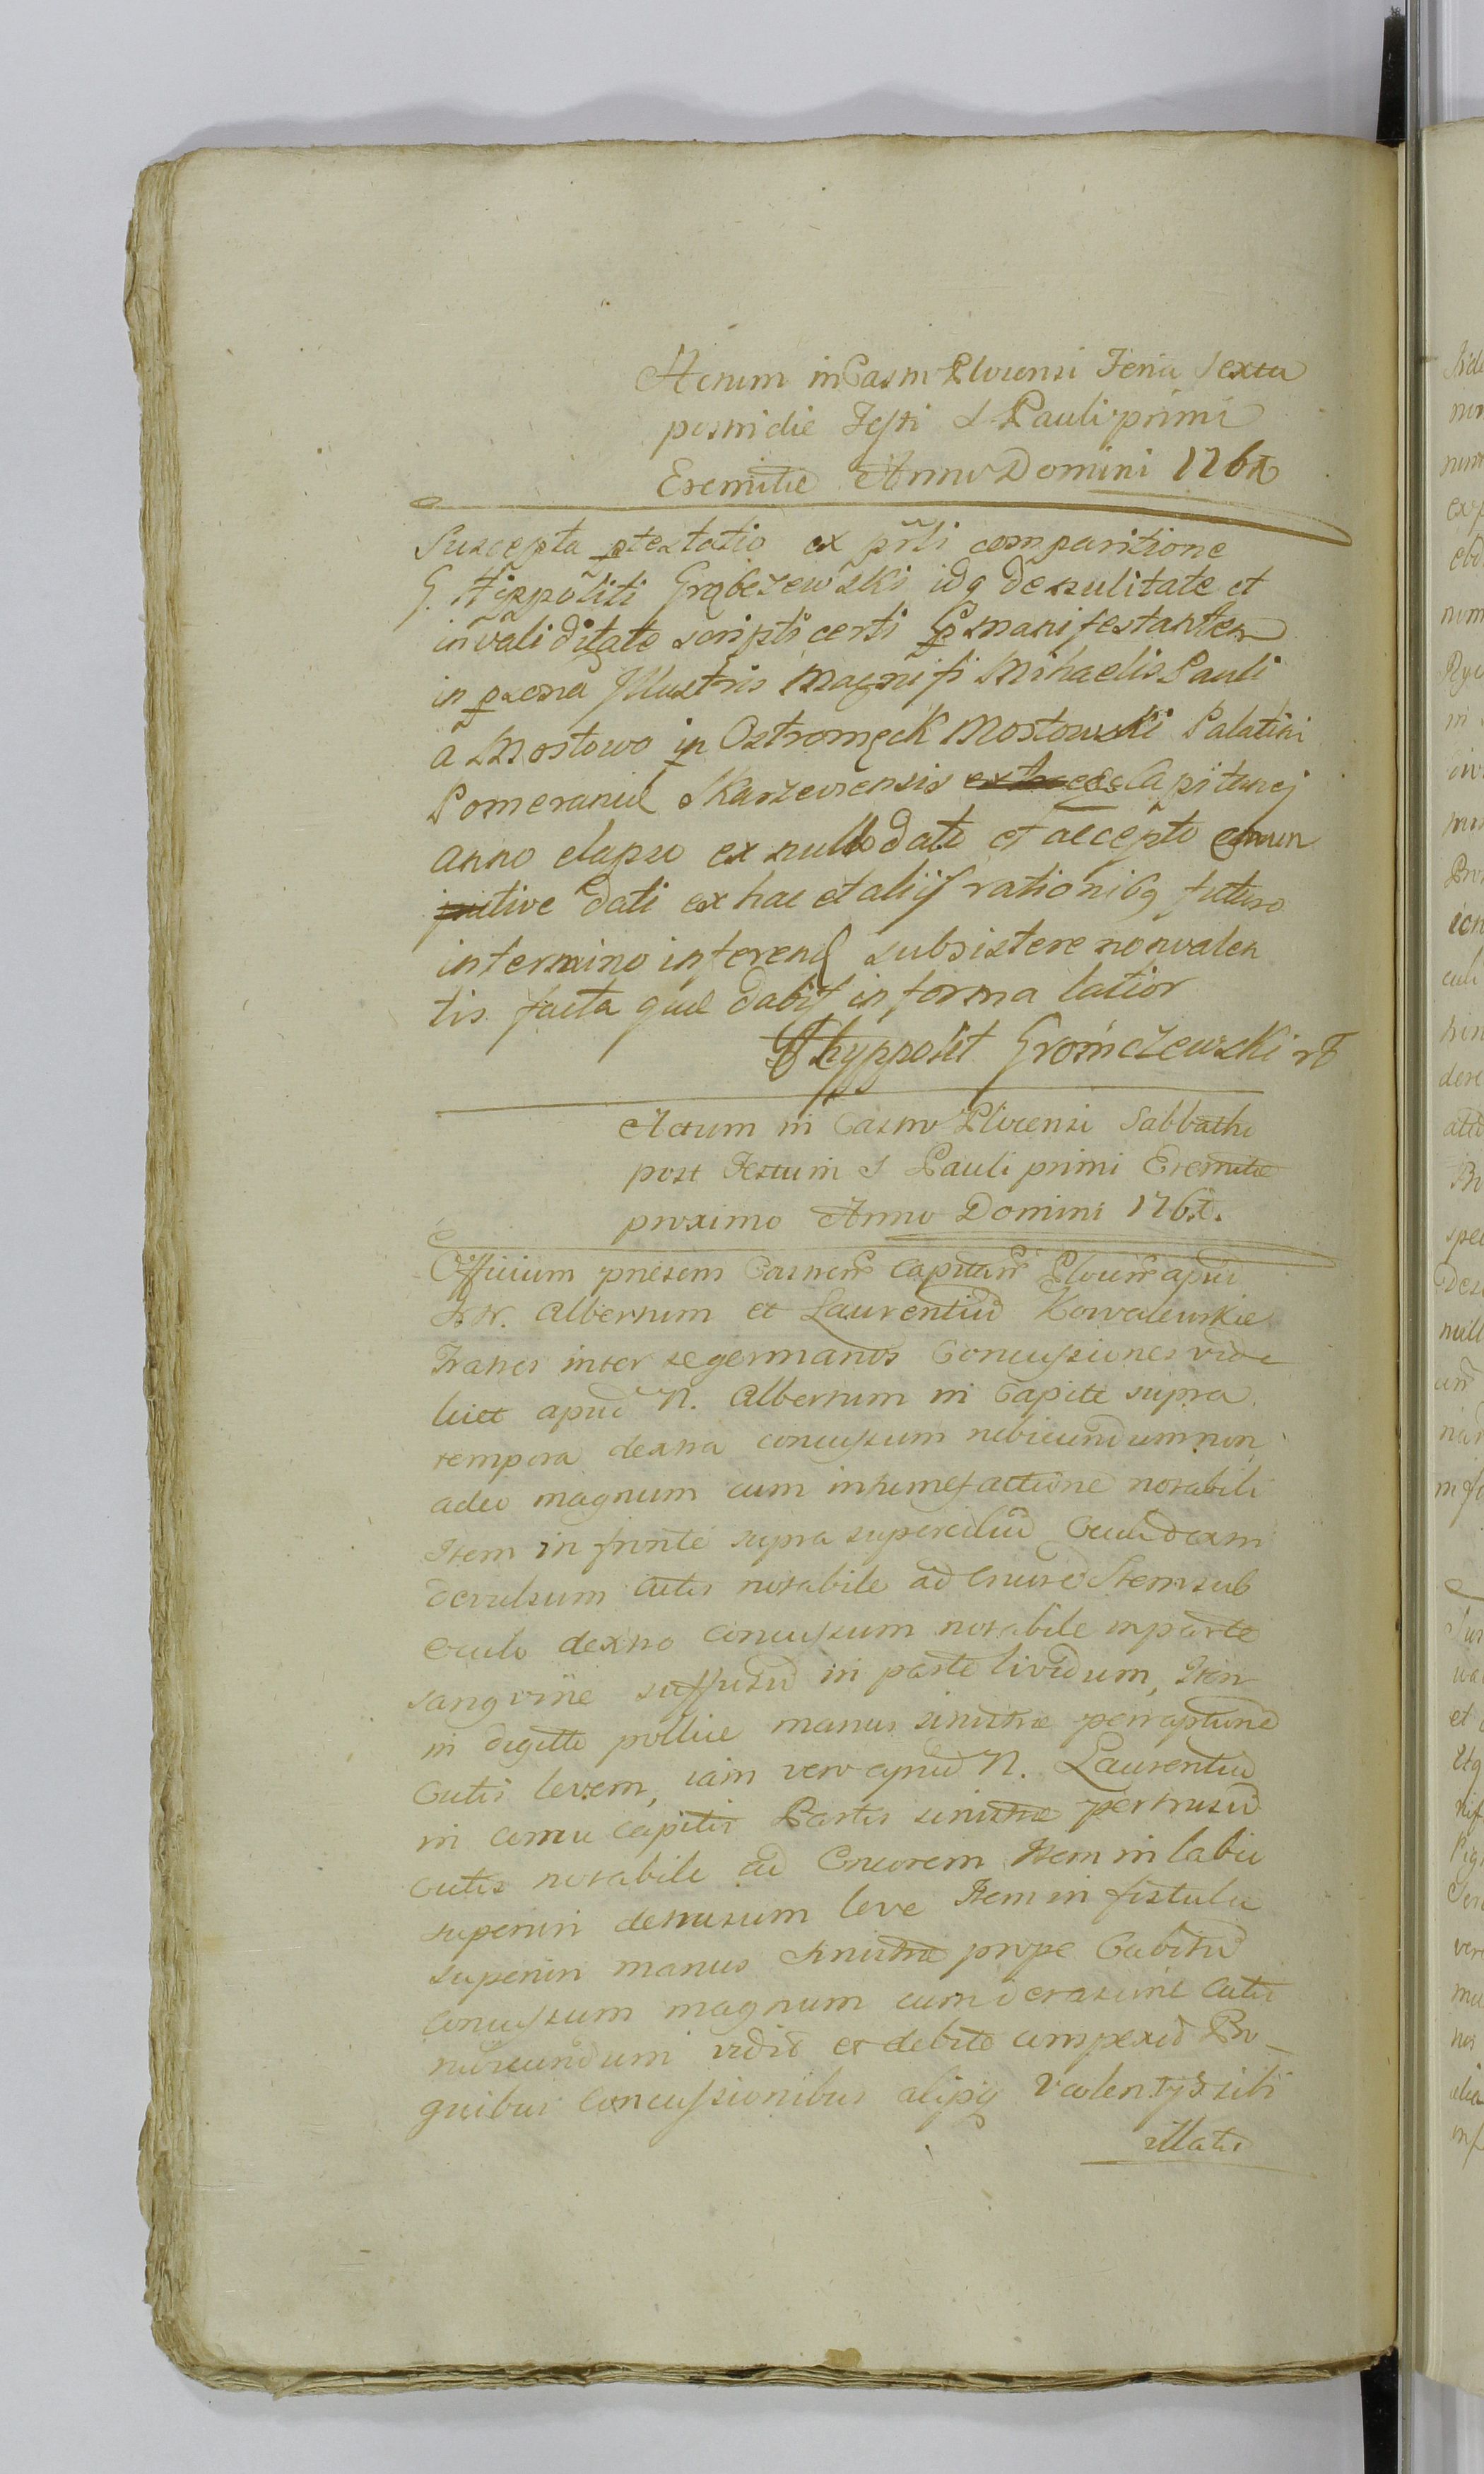 Actum in Castro Plocensi Feria Sexta
postridie Festi S Pauli primi
Eremitae Anno Domini 1761
Suscepta ptestatio ex pñti comparitione
G. Hippoliti Grąbczewski idq de nulitate et
invaliditate scripti certi p manifestantem
in psona Illustris Magnifi Mihaelis Pauli
a Mostowo in Ostromęck Mostowski Palatini
Pomeraniæ Skarzeviensis Capitanej
anno elapso ex nullo dato et accepto
dati ex hac et aliis rationibq futuro
in termino inferend subsistere non valen
tis facta quæ dabit in forma latior
Hyppolit Gromczewski
Actum in Castro Plocensi Sabbatho
post Festum S Pauli primi Eremitae
proximo Anno Domini 1761.
Officium praesens Castren Capitan Plocen apud
NN. Albertum et Laurentiu Kowalewskie
Fratres inter se germanos Concussiones vide
licet apud N. Albertum in Capite supra
tempora dextra concussum rubicundum non
adeo magnum cum intumefactione notabili
Item in fronte supra superciliu Oculi dextri
devulsum cutis notabile ad cruore Item sub
Oculo dextro concussum notabile in parte
sangvine suffusu in parte lividum, Item
in digitto pollice manus sinistrae
Cutis levem, iam vero apud N. Laurentiu
in capitis Partis sinistrae pertrusu
cutis notabile ad Cruorem Item in labio
superiri detrusum leve Item in fistula
superiri manus sinistrae prope Cubitu
concussum magnum cum derasione Cutis
rubicundum vidit et debite compexit Pro
quibus Concussionibus alijsq Violentijs sibi
illatis